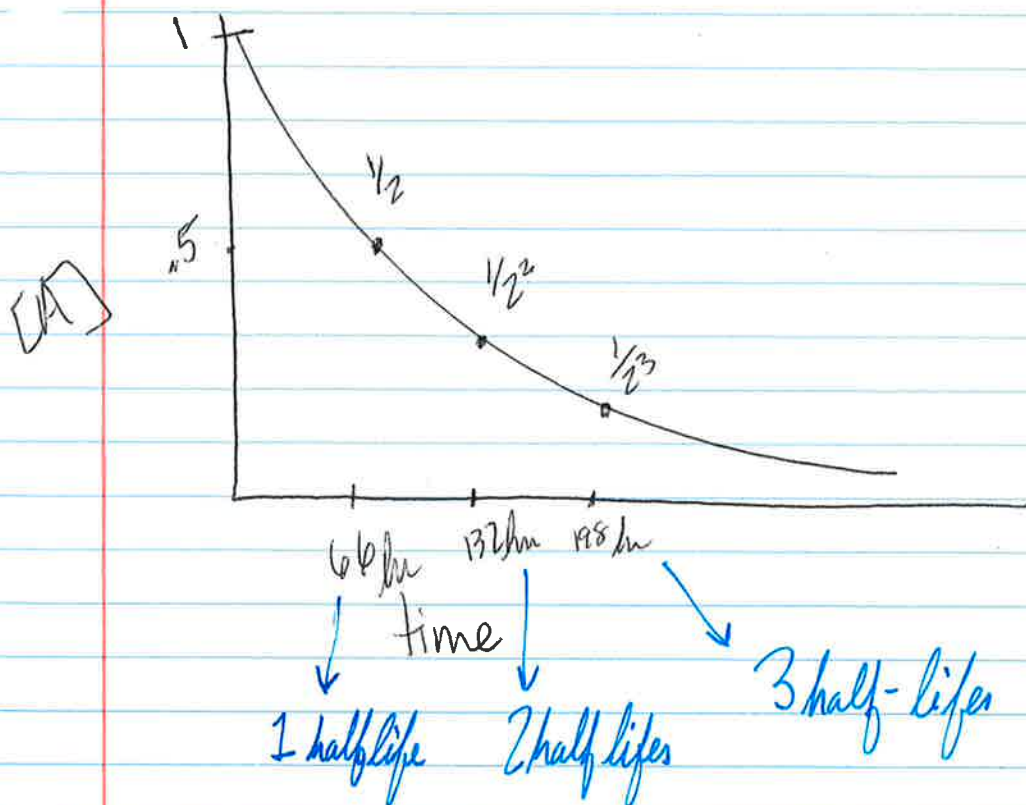 1
1/2
.5
1/2²
[A]
1/2³
66 hr 132 hr 198 hr
time
1 half life 2 half lifes 3 half-lifes